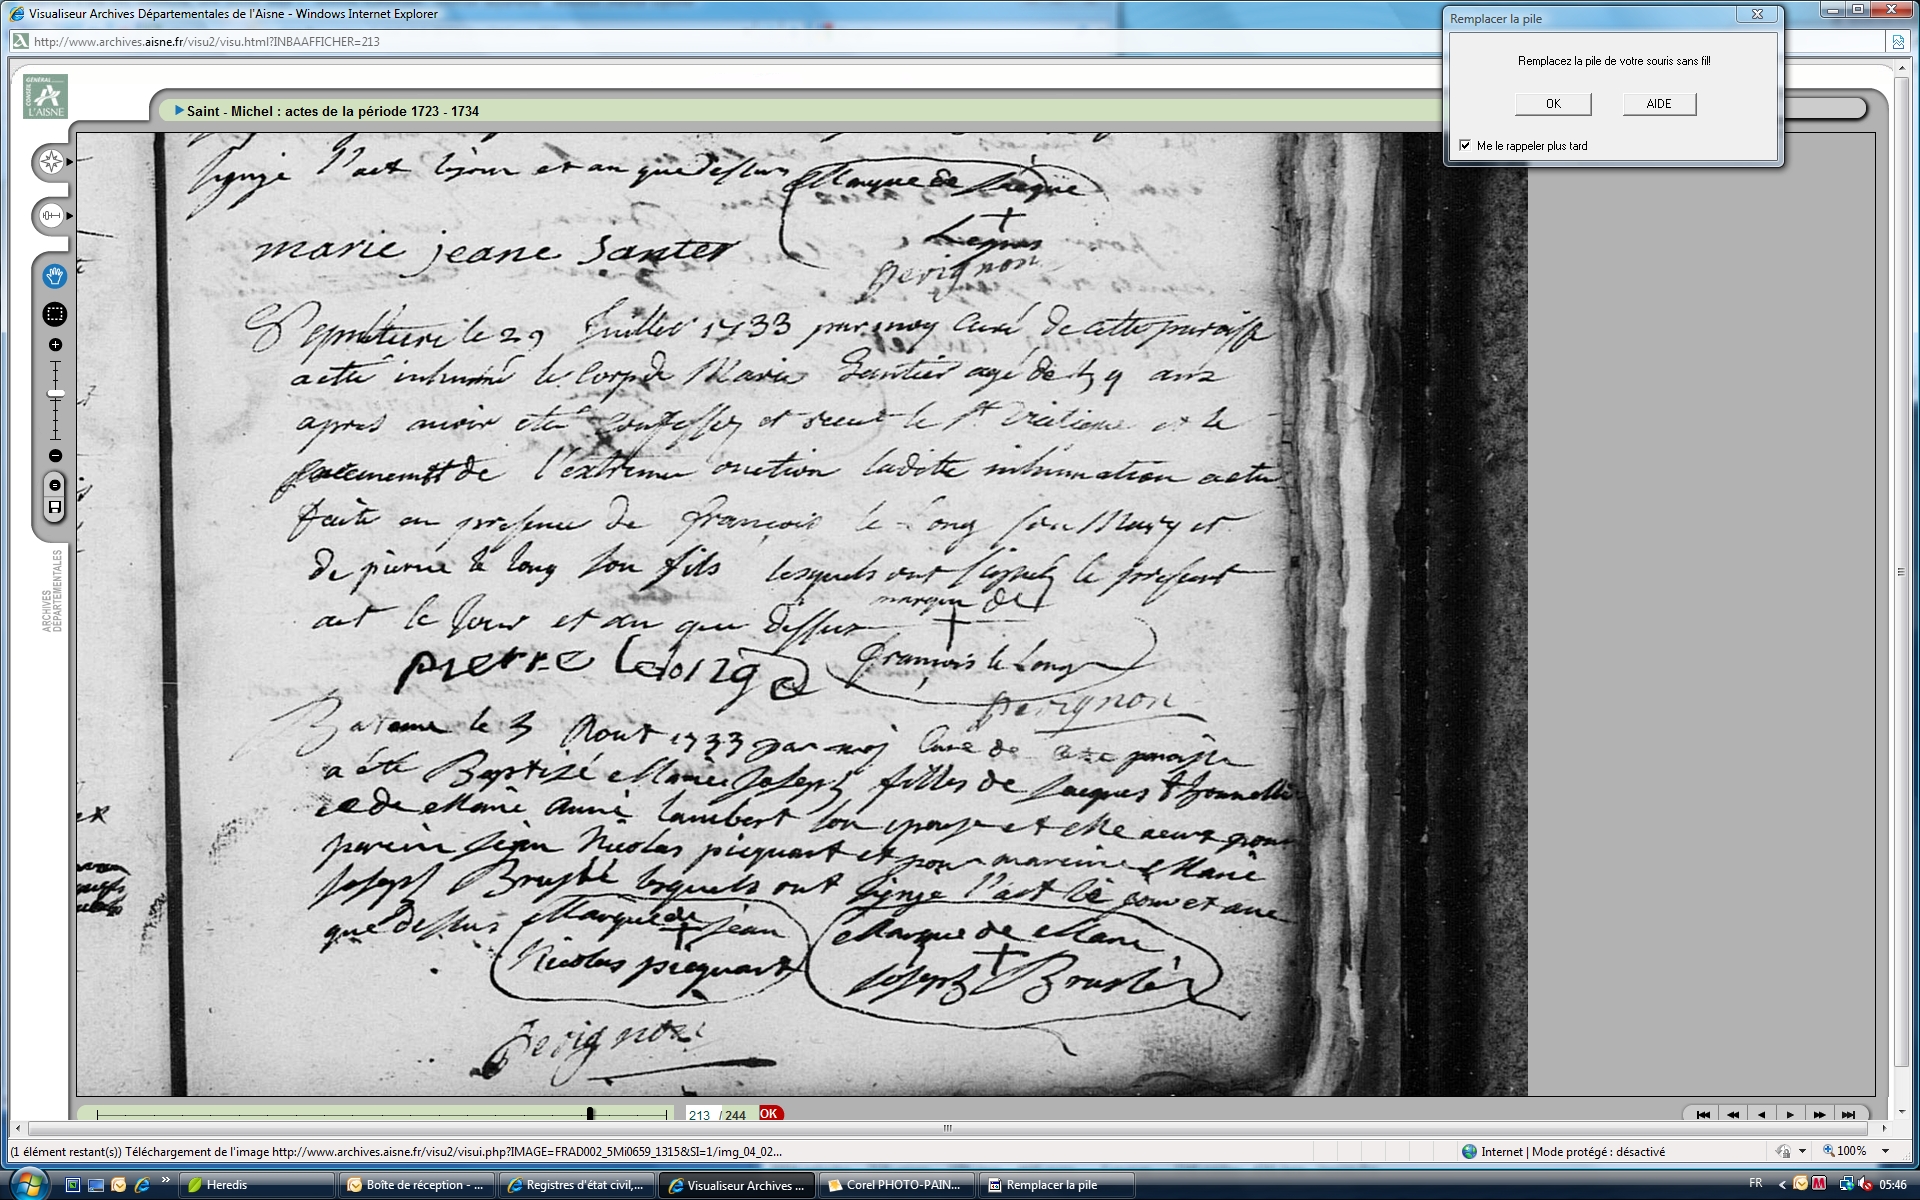 Visualiseur Archives Départementales de l'Aisne - Windows Internet Explorer
http://www.archives.aisne.fr/visu2/visu.html?INBAAFFICHER=213
Remplacer la pile
Remplacez la pile de votre souris sans fil!
OK
AIDE
Me le rappeler plus tard
CONSEIL GÉNÉRAL
L'AISNE
Saint - Michel : actes de la période 1723 - 1734
ARCHIVES DÉPARTEMENTALES
l'act et an que dessus Marque de
marie jeane Santer
perignon
Sepulture le 29 Juillet 1733 par moy Curé de cette paroisse
a etté inhumé le Corp de Marie Gantier agé de 59 ans
apres avoir eté Confessez et receut le St Viatique et le
sacrement de l'extreme onction laditte inhumation a ette
faite en presence de françois le Long son Mary et
de pierre le long son fils lesquels ont signez le present
act le Jour et an que dessus marque de
pierre lelong françois le Long
perignon
Bateme le 3 Aout 1733 par moj Curé de cette paroisse
a été Baptizé Marie Joseph filles de Jacques
et de Marie Anne lambert son epouse et elle a eut pour
parein Jean Nicolas picquart et pour mareine Marie
Joseph Bruslé lesquels ont signe l'act le jour et an
que dessus Marque de Jean Marque de Marie
Nicolas picquart Joseph Bruslé
perignon
213 / 244 OK
(1 élément restant(s)) Téléchargement de l'image http://www.archives.aisne.fr/visu2/visui.php?IMAGE=FRAD002_5Mi0659_1315&SI=1/img_04_02...
Internet | Mode protégé : désactivé
100%
Heredis
Boîte de réception - ...
Registres d'état civil,...
Visualiseur Archives ...
Corel PHOTO-PAIN...
Remplacer la pile
FR
05:46